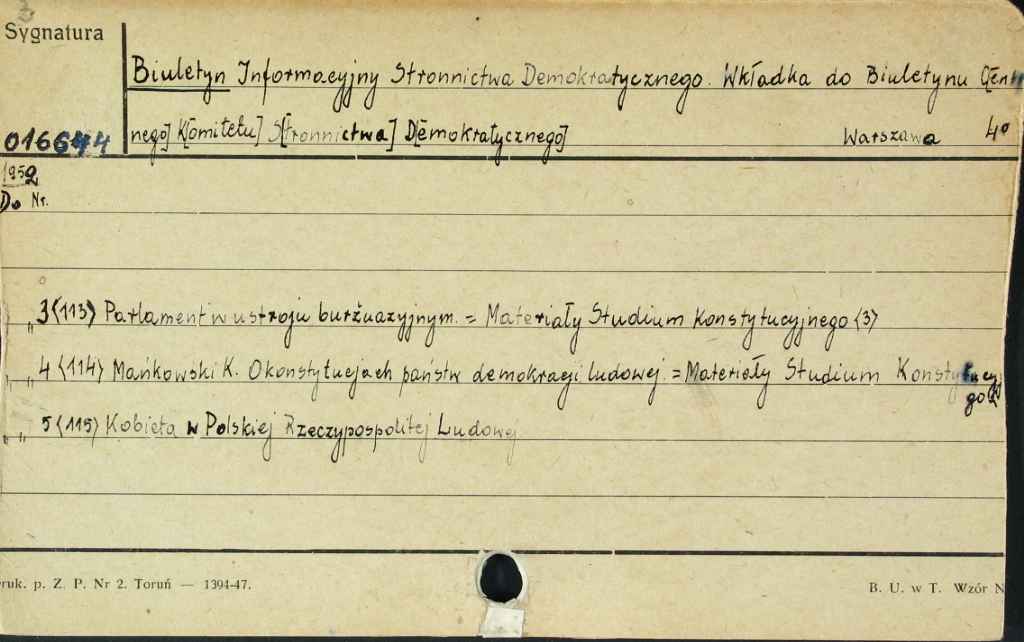 Sygnatura
Biuletyn Informacyjny Stronnictwa Demokratycznego. Wkładka do Biuletynu C[ent
016644 nego] K[omitetu] S[tronnictwa] D[emokratycznego] Warszawa 4°
1952
Do Nr.
" 3 <113> Parlament w ustroju burżuazyjnym. = Materiały Studium Konstytucyjnego <3>
" " 4 <114> Mańkowski K. O konstytucjach państw demokracji ludowej. = Materiały Studium Konstytucyj
go
" " 5 <115> Kobieta w Polskiej Rzeczypospolitej Ludowej
ruk. p. Z. P. Nr 2. Toruń — 1394-47. B. U. w T. Wzór N